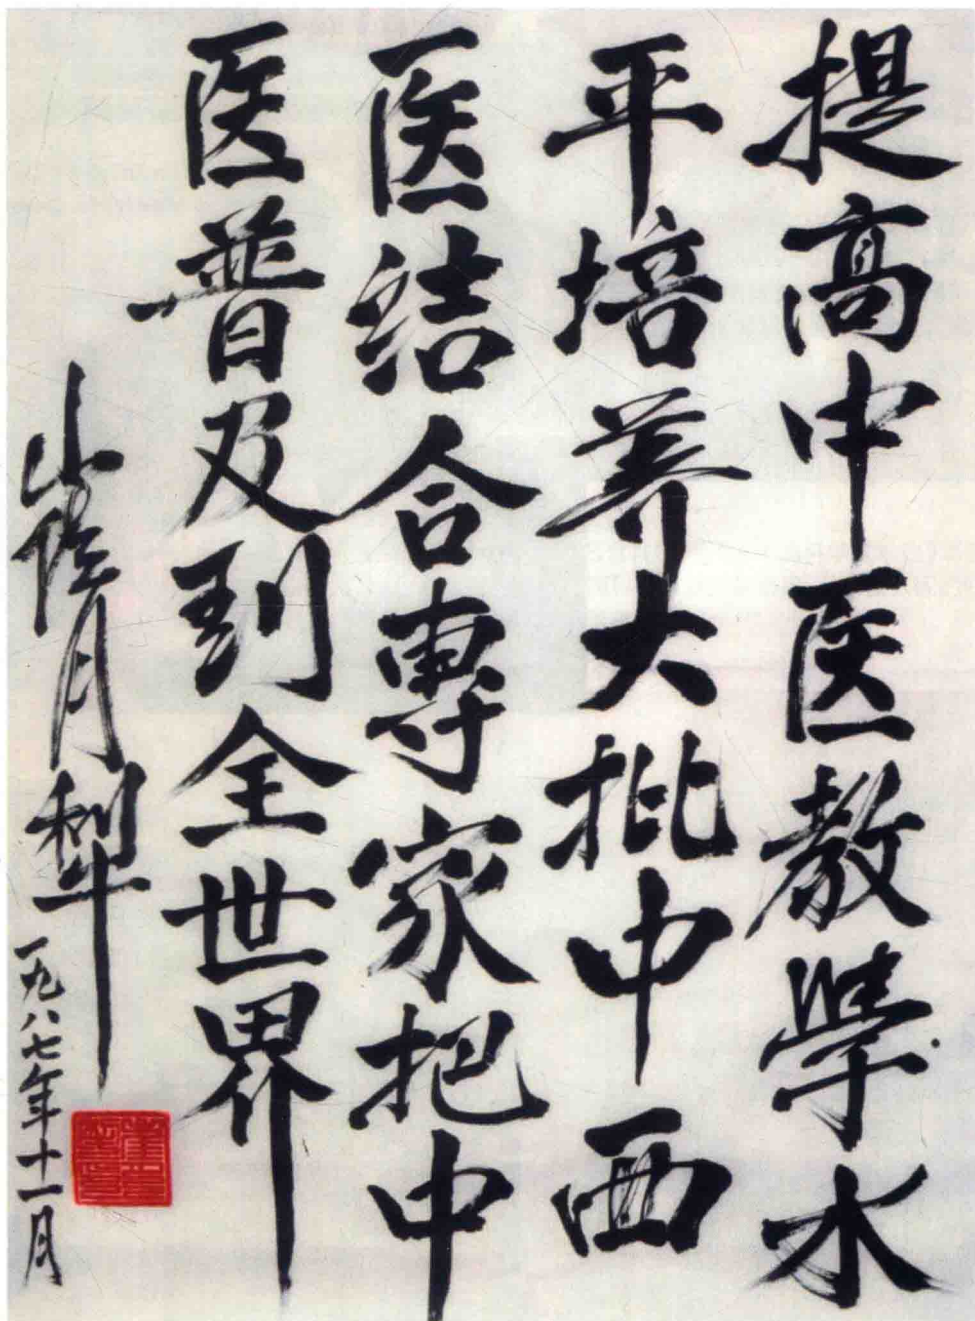 提高中医教學水
平培养大批中西
医结合專家把中
医普及到全世界
崔月犁
一九八七年十一月